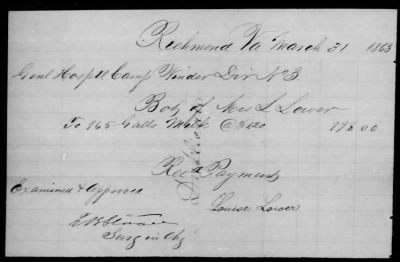 Richmond Va March 31 1863
Genl Hosptl Camp Winder Div No 3
Bot of Mrs L Lower
To 165 Galls Milk @
Recd Payment
Louise Lower
Examined & Approved
Surg in Chg